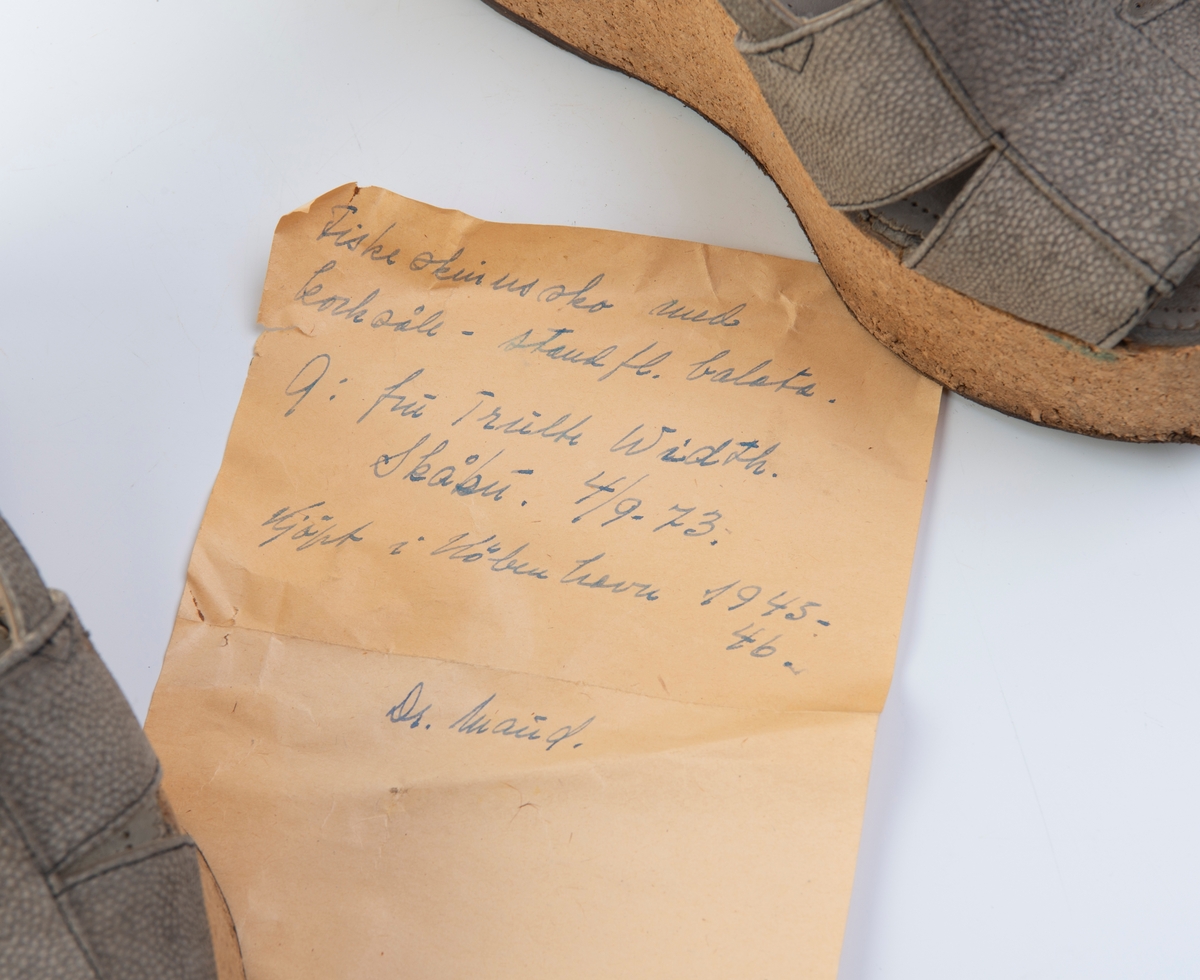 Fiskeskinns sko med
korksåle - stand fl. balata.
G: frú Trulte Width.
Skåbu. 4/9-73.
Kjöpt i Köbenhavn 1945-
46-
Dr. Maud.